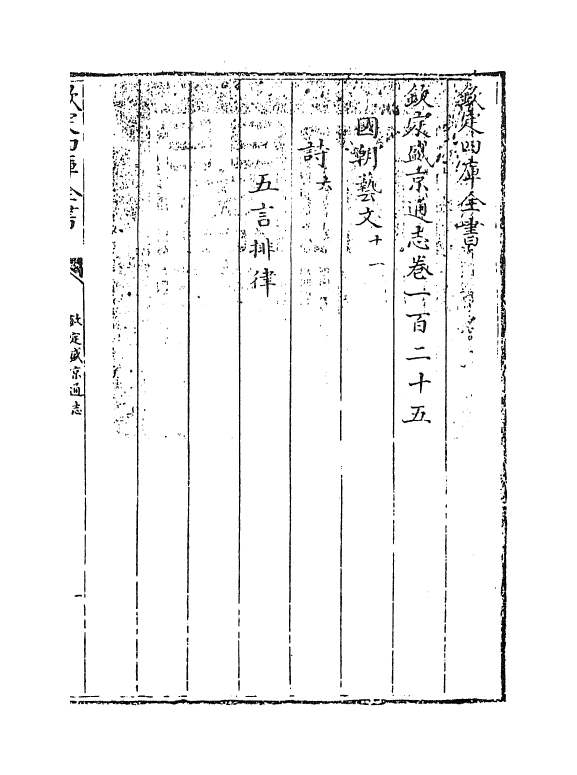 欽定四庫全書
欽定盛京通志卷一百二十五
國朝藝文十一
詩六
五言排律
欽定四庫全書
欽定盛京通志
一